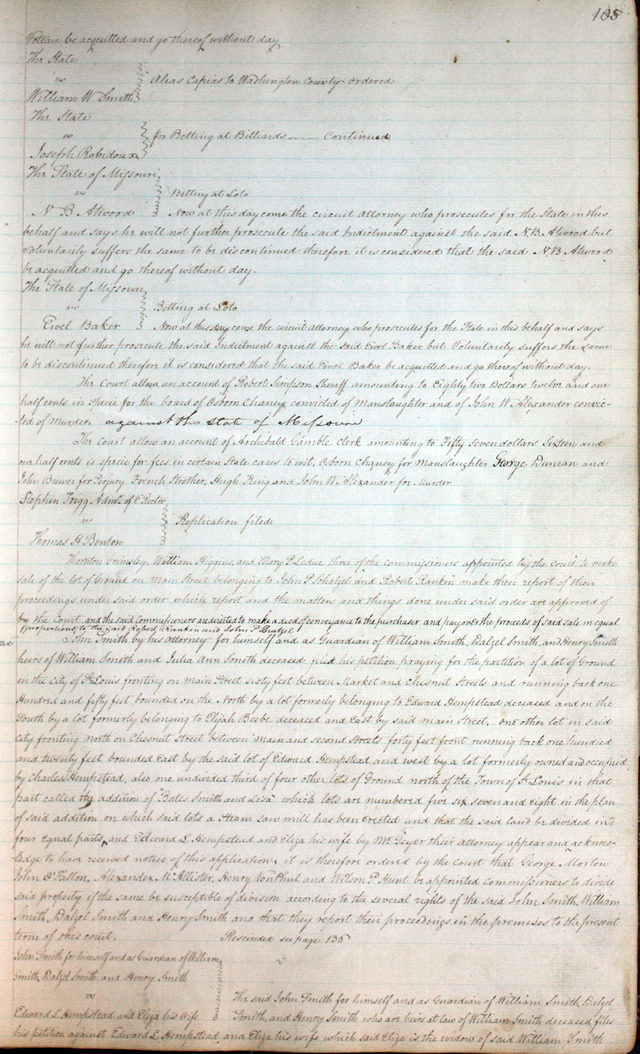 185
be acquitted and go thereof without day
The State
vs
Alias Capias to Washington County ordered
William W Smith
The State
vs
for Betting at Billiards Continued
Joseph Robidoux
The State of Missouri
vs
Betting at Loto
N B Atwood Now at this day come the circuit attorney who prosecutes for the State in this
behalf and says he will not further prosecute the said Indictment against the said N.B. Atwood but
voluntarily suffers the same to be discontinued therefore it is considered that the said N.B Atwood
be acquitted and go thereof without day.
The State of Missouri
vs
Betting at Loto
Ewel Baker Now at this day come the circuit attorney who prosecutes for the State in this behalf and says
he will not further prosecute the said Indictment against the said Ewel Baker but Voluntarily suffers the same
to be discontinued therefore it is considered that the said Ewel Baker be acquitted and go thereof without day.
The Court allow an account of Robert Simpson Sheriff amounting to Eighty two Dollars twelve and one
half cents in specie for the board of Osborn Chaney convicted of Manslaughter and of John W. Alexander convic-
ted of Murder against the State of Missouri
The Court allows an account of Archibald Gamble Clerk amounting to Fifty seven dollars Sixteen and
one half cents is specie for fees in certain State cases to wit, Osborn Chaney for Manslaughter George Duncan and
John Brewer for Perjury French Strother, Hugh King and John W. Alexander for Murder
Stephen Trigg Admr. of C Rector
vs
Replication filed
Thomas H Benton
Thornton Grimsley, William Higgins, and Mary P. Leduc three of the commissioners appointed by the Court to make
sale of the lot of Ground on Main Street belonging to John P. and Robert Rankin make their report of their
proceedings under said order which report and the matters and things done under said order are approved of
by the Court, and the said Commissioners as to make a deed of conveyance to the purchaser and pay over the proceeds of said sale in equal
proportions to the said Robert Rankin and John P.
John Smith by his attorney for himself and as Guardian of William Smith, Dalzel Smith, and Henry Smith
heirs of William Smith and Julia Ann Smith deceased filed his petition praying for the partition of a lot of Ground
in the city of St Louis fronting on main Street sixty feet between Market and Chesnut Streets and running back one
Hundred and fifty feet bounded on the North by a lot formerly belonging to Edward Hempstead deceased and on the
South by a lot formerly belonging to Elijah Beebe deceased and East by said main Street, one other lot in said
City fronting north on Chesnut Street between main and second Streets forty feet front running back one hundred
and twenty feet bounded East by the said lot of Edward Hempstead and west by a lot formerly owned and occupied
by Charles Hempstead, also one undivided third of four other lots of Ground north of the Town of St Louis in that
part called the addition of "Bates Smith and Lisa" which lots are numbered five six seven and eight in the plan
of said addition on which said lots a Steam saw mill has been erected and that the said land be divided into
four equal parts, and Edward L Hempstead and Eliza his wife by Mr Geyer their attorney appear and acknow-
ledge to have received notice of this application, it is therefore ordered by the court that George Morton
John O'Fallon, Alexander McAllister, Henry Von Phul and Wilson P. Hunt be appointed commissioners to divide
said property if the same be susceptible of division according to the several rights of the said John Smith, William
Smith, Dalzel Smith and Henry Smith and that they report their proceedings in the premises to the present
term of this court. Rescinded see page 136
John Smith for himself and as Guardian of William
Smith, Dalzel Smith, and Henry Smith
vs
The said John Smith for himself and as Guardian of William Smith Dalzel
Edward L Hempstead and Eliza his Wife Smith, and Henry Smith who are heirs at law of William Smith deceased files
his petition against Edward L Hempstead, and Eliza his wife which said Eliza is the widow of said William Smith